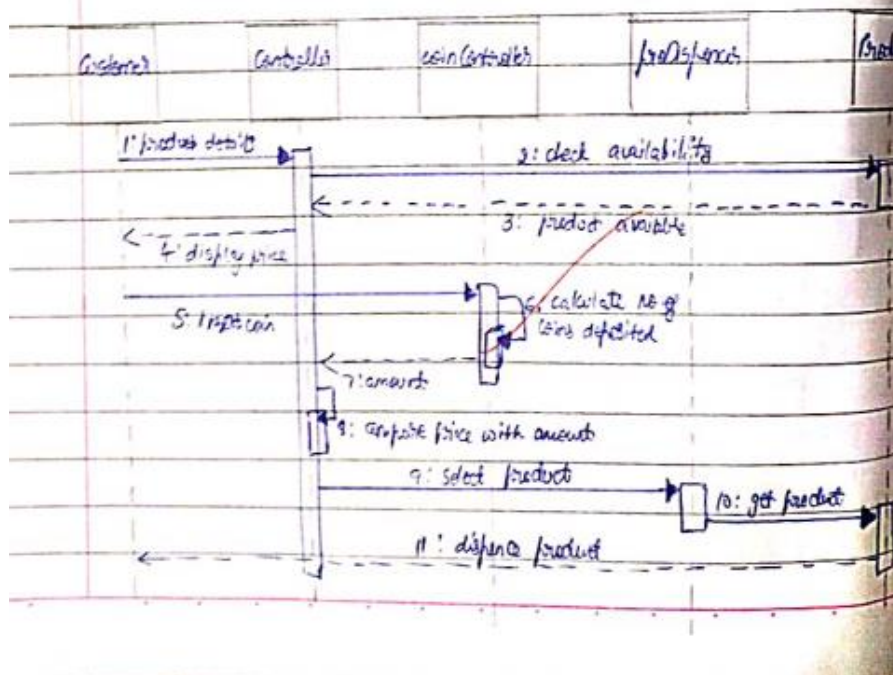 Customer
Controller
coin Controller
proDispencer
Prod
1: product details
2: check availability
3: product available
4: display price
5: Insert coin
6. calculate no of
coins deposited
7: amount
8: compare price with amount
9: select product
10: get product
11: dispence product